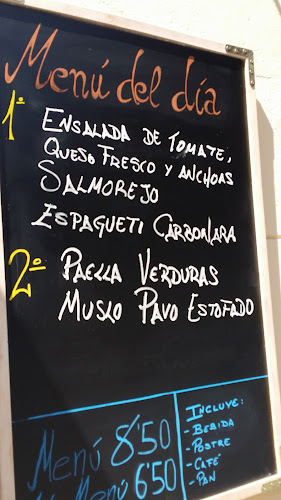 Menú del día
1º ENSALADA DE TOMATE,
QUESO FRESCO Y ANCHOAS
SALMOREJO
ESPAGUETI CARBONARA
2º PAELLA VERDURAS
MUSLO PAVO ESTOFADO
Menú 8'50
Menú 6'50
INCLUYE:
- BEBIDA
- POSTRE
- CAFÉ
- PAN